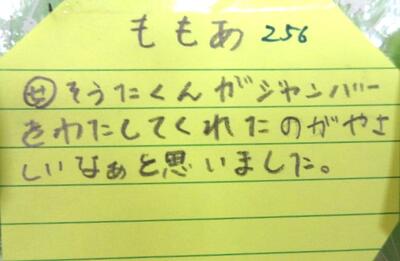 ももあ 256
㋝そうたくんがジャンバー
をわたしてくれたのがやさ
しいなぁと思いました。